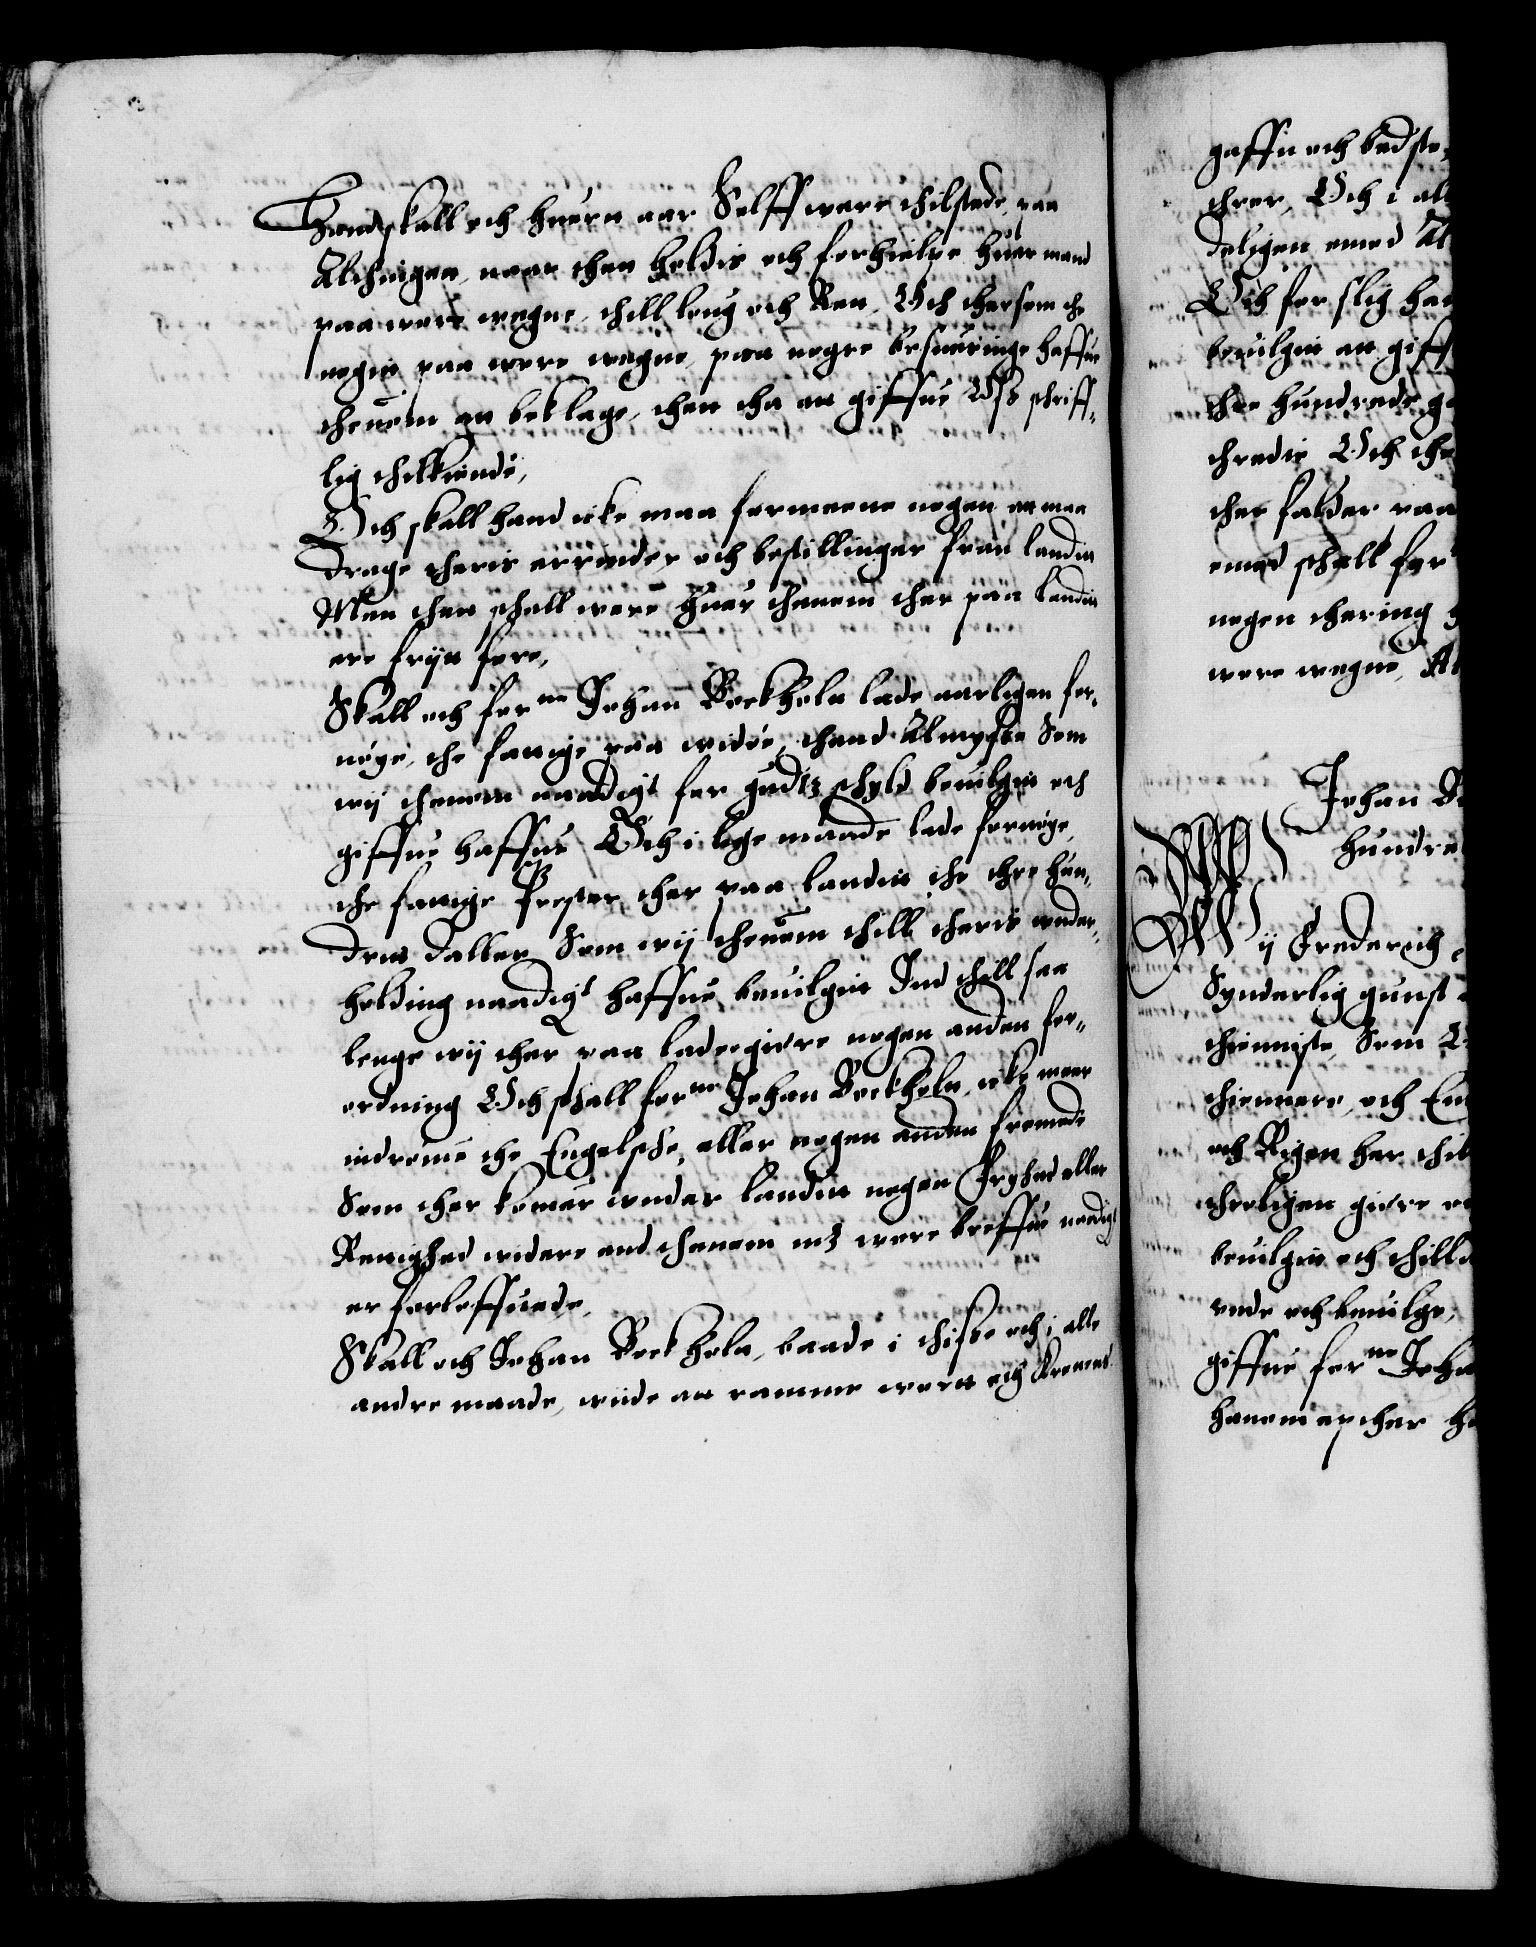 Hand skall och huert aar Selff were thilstede, paa
Althingen, naar then holdis och forhielpe huer mand
paa wore wegne, thill loug och Ret, Och ther som the
nogit paa wore wegne, paa nogre besueringe haffue
thenom att beklage, then tha att giffue Oss schrifft-
lig thilkiende,
Och skall hand icke maa formeene nogen att maa
drage theris erinder och bestillinger fran landit
Men then schall were huer thenom ther paa landit
ere frijtt fore,
Skall och forne Johan Bockholt lade aarligen for-
nøge, the fattige paa widøe, thend Almysse Som
wij thenom naadigst for gudtz skyld beuilgitt och
giffuit haffue Och i lige maade lade fornøge,
the fattige Prester ther paa landit the thre hun-
drit daller Som wij thenom thill theris under-
holding naadigst haffue beuilgitt Ind thill saa
lenge wij ther paa lade giøre nogen anden for-
ordning Och schall forne Johan Bockholt, icke mere
indrømme the Engelsche, eller nogen anden fremede
Som ther komer under landit nogen Fryhed eller
Rettighed widere end thenom mz wore breffue naadigst
er forleffuede,
Skall och Johan Bockholt, baade i thisse och i alle
andre maade, wiide att ramme wort och Kronens
gaffn och bedste,
threr, Och i all
deligen emod Al
Och for slig han
beuilgit att giff
thre hundrede ga
thredie Och the
ther falder paa
emod schall for
nogen thering h
wore wegne, At
Johan B
hundre
Wij Frederich
Synderlig gunst
thienniste, Som
thiennere, och Em
och Rigen her thil
throligen giøre
beuilgit och thill
unde och beuilge,
giffue forne Joha
hannem er ther h